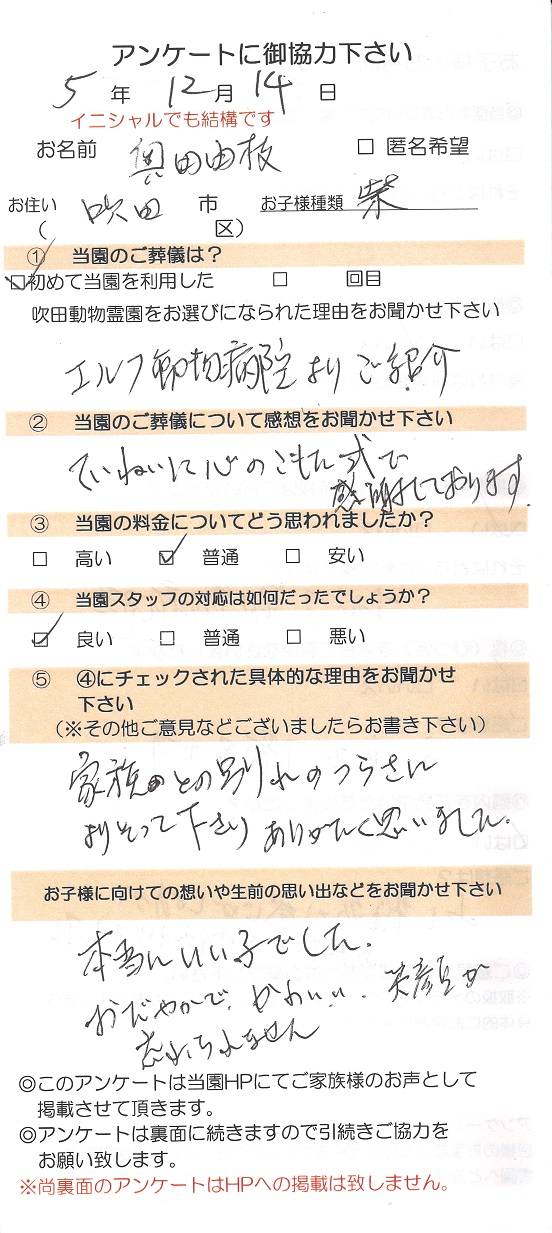 アンケートに御協力下さい
5 年 12 月 14 日
イニシャルでも結構です
お名前 奥田由枝 □ 匿名希望
お住い 吹田 市 お子様種類 柴
( 区)
① 当園のご葬儀は?
☑初めて当園を利用した □ 回目
吹田動物霊園をお選びになられた理由をお聞かせ下さい
エルフ動物病院よりご紹介
② 当園のご葬儀について感想をお聞かせ下さい
ていねいに心のこもた式で
感謝しております.
③ 当園の料金についてどう思われましたか?
□ 高い ☑ 普通 □ 安い
④ 当園スタッフの対応は如何だったでしょうか?
☑ 良い □ 普通 □ 悪い
⑤ ④にチェックされた具体的な理由をお聞かせ
下さい
(※その他ご意見などございましたらお書き下さい)
家族との別れのつらさに
よりそって下さり ありがたく思いました.
お子様に向けての想いや生前の思い出などをお聞かせ下さい
本当にいい子でした.
おだやかで、かわいい、笑顔が
忘れられません
◎このアンケートは当園HPにてご家族様のお声として
掲載させて頂きます。
◎アンケートは裏面に続きますので引続きご協力を
お願い致します。
※尚裏面のアンケートはHPへの掲載は致しません。